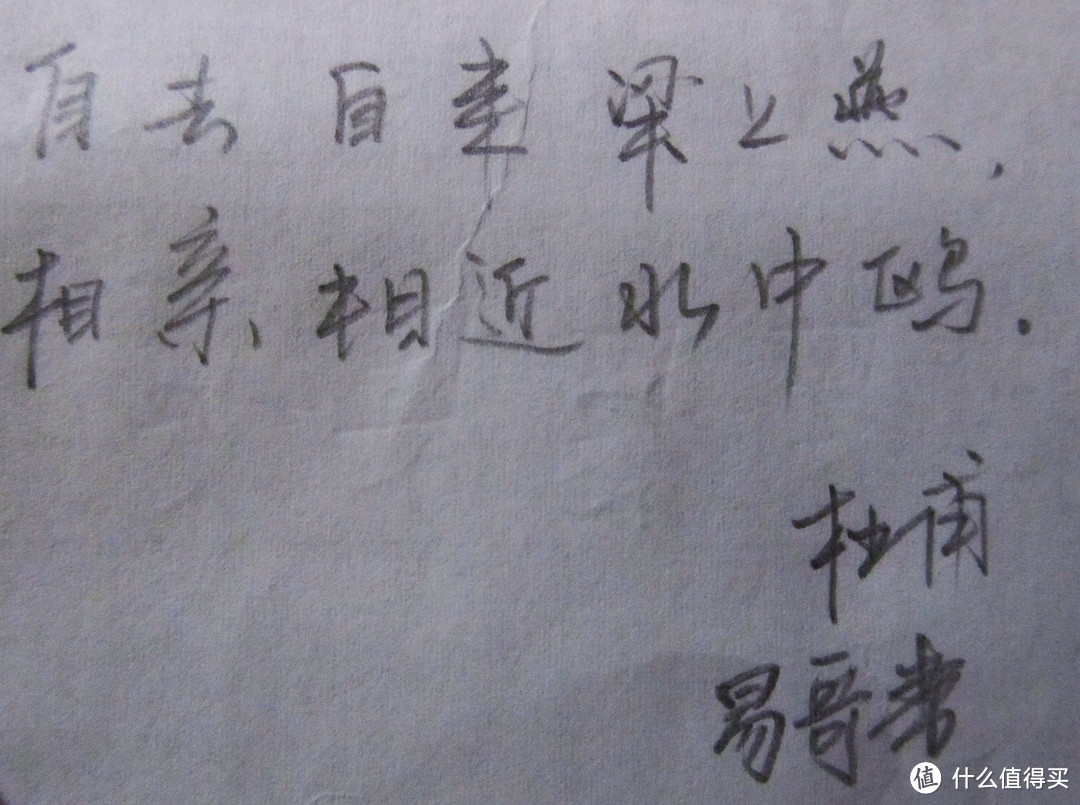 自去自来梁上燕,
相亲相近水中鸥.
杜甫
易哥書
值 什么值得买